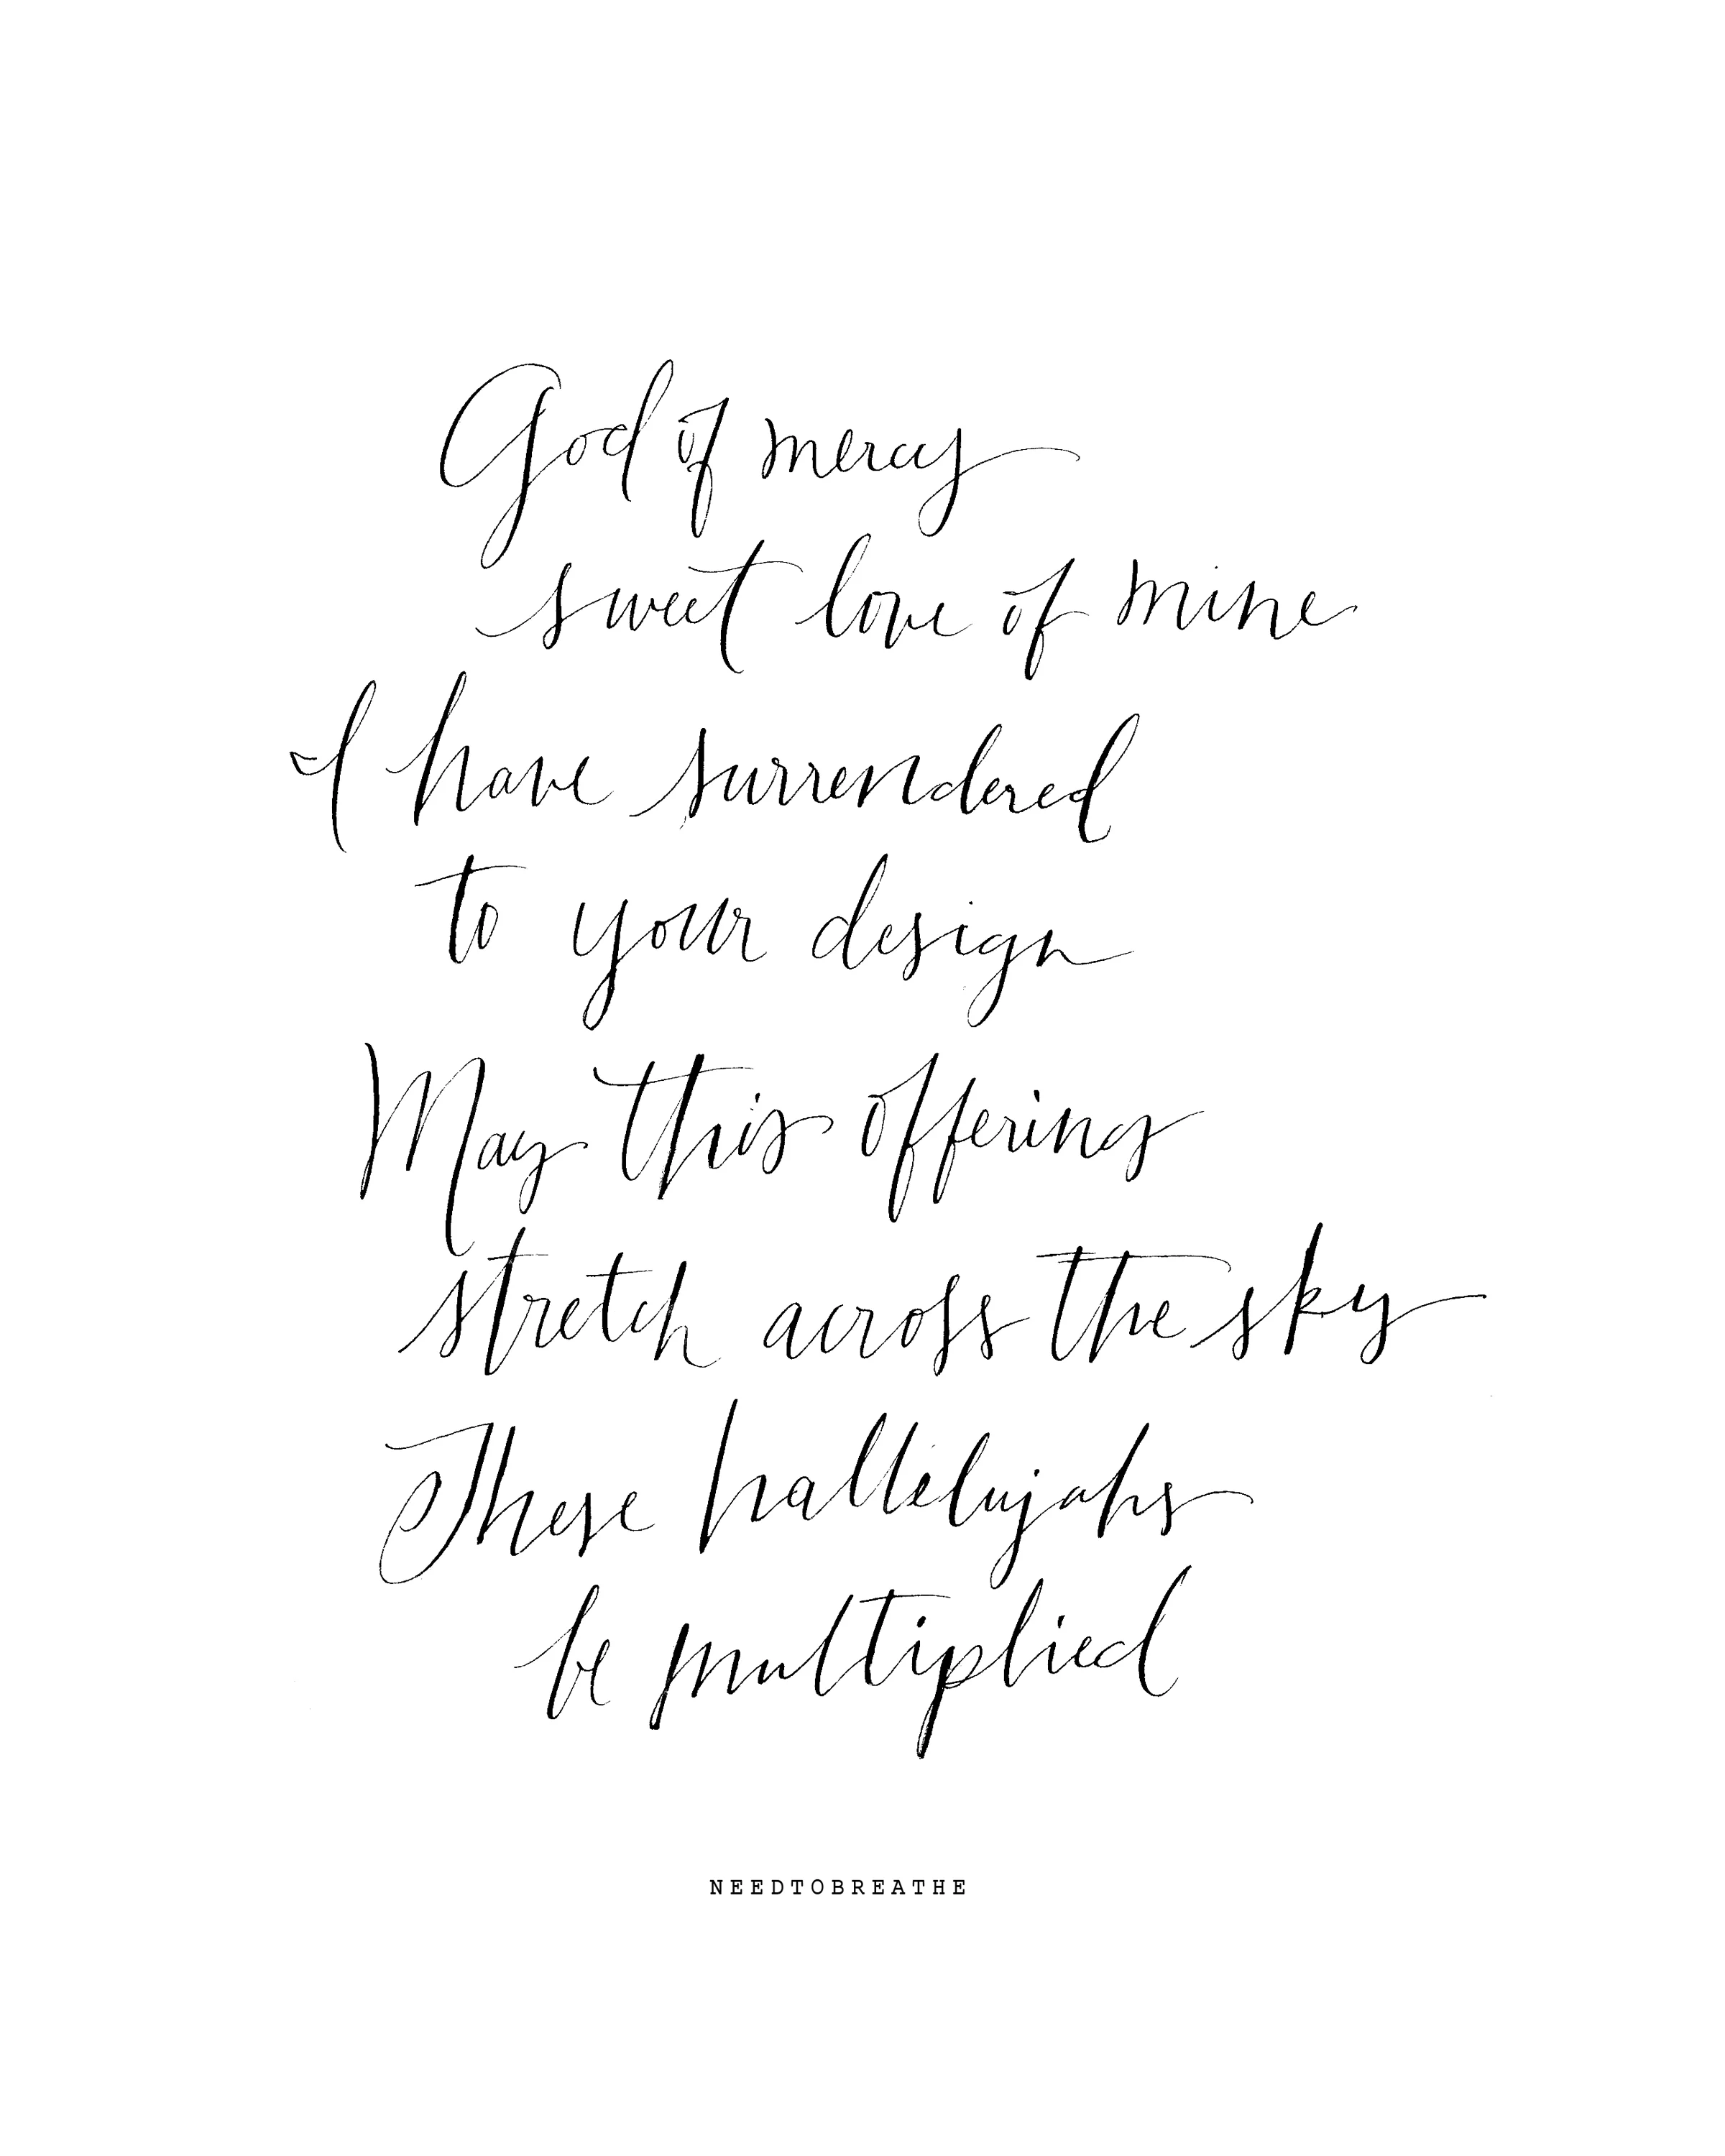 God of mercy
sweet love of mine
I have surrendered
to your design
May this offering
stretch across the sky
These hallelujahs
be multiplied
NEEDTOBREATHE